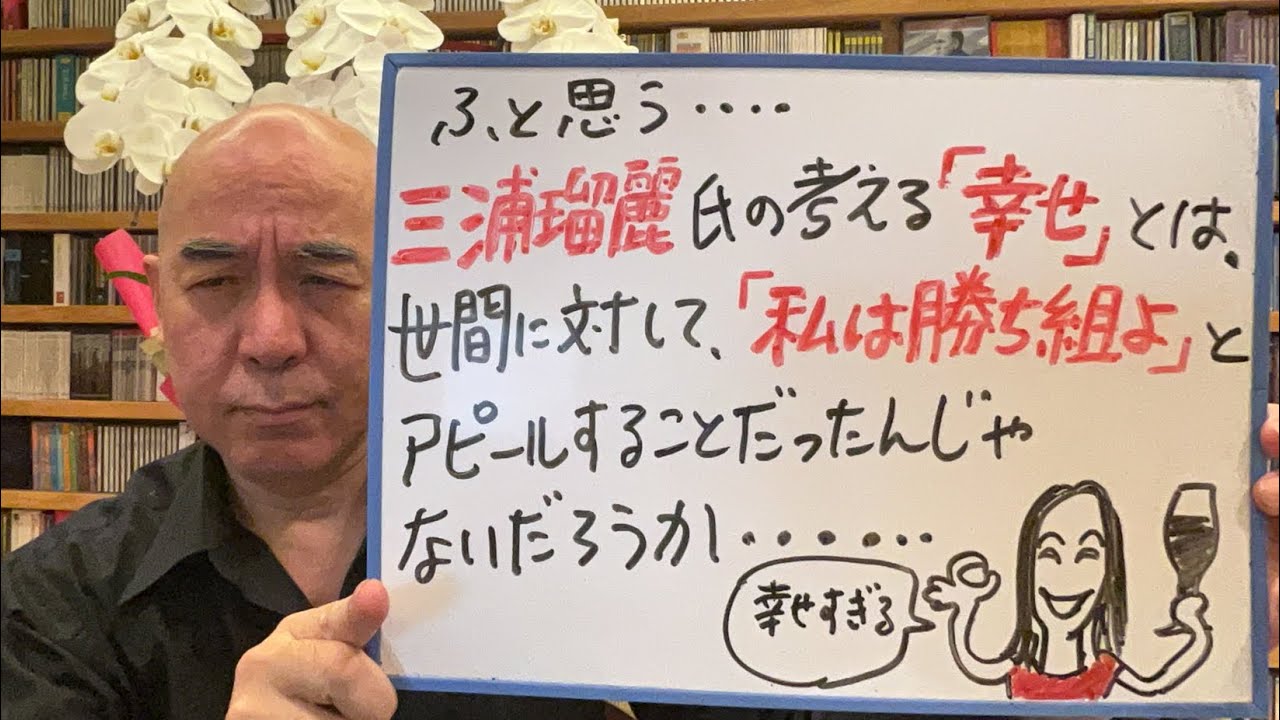 ふと思う‥‥
三浦瑠麗氏の考える「幸せ」とは、
世間に対して、「私は勝ち組よ」と
アピールすることだったんじゃ
ないだろうか・・・・・・
幸せすぎる